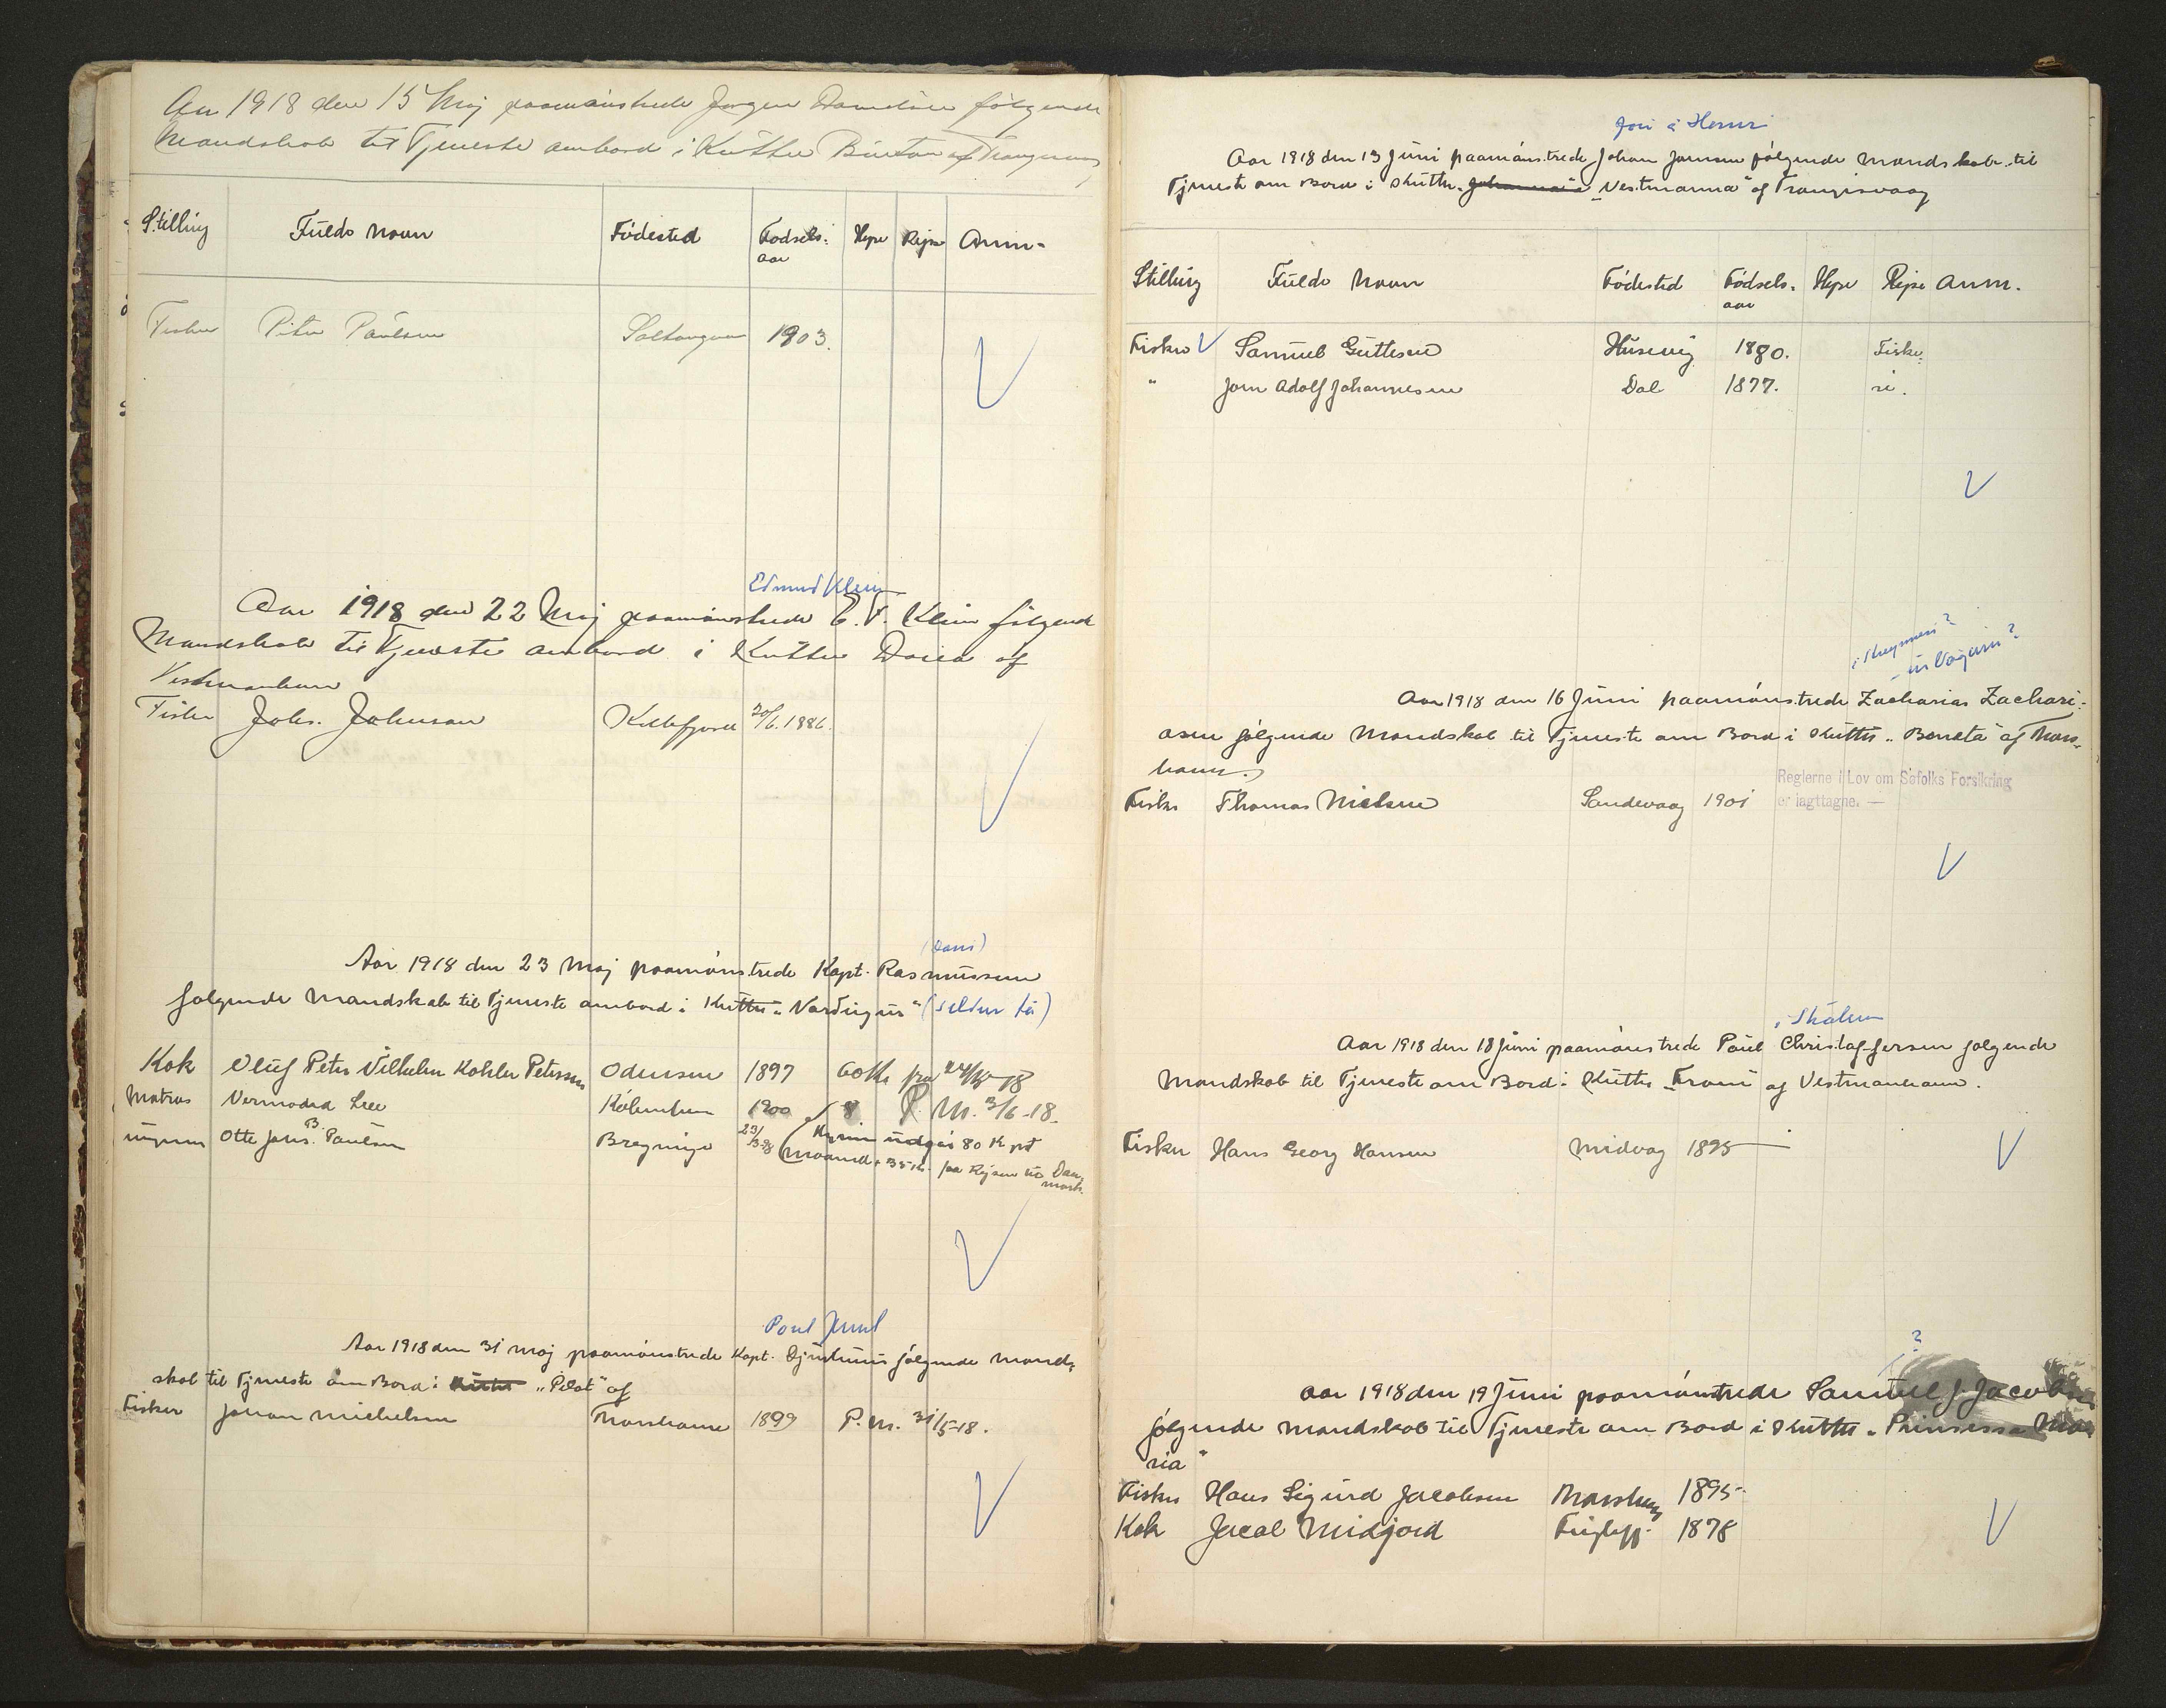 Aar 1918 den 15 Maj paamönstrede Jørgen følgende
Mandskab til Tjeneste ombord i Kutter af
Stilling Fulde Navn Fødested Fødsels- aar Hyre Rejse Anm-
Fisker Peter Paulsen 1903.
Edmund Klein
Aar 1918 den 22 Maj paamönstrede E. V. Klein følgende
Mandskab til Tjeneste ombord i Kutter af
Vestmanhavn
Fisker Johs. Johnson Kollefjord 20/6. 1886.
(Dans)
Aar 1918 den 23 Maj paamönstrede Kapt. Rasmussen
følgende Mandskab til Tjeneste ombord i Kutter „Vardingur“ (seldur til)
Kok Oluf Peter Vilhelm Kohler Petersen Odense 1897 60 Kr fra 24/5-18
Matros Lee København 1900 P. M. 3/6-18.
ungmn Otto Johs. B. Paulsen Bregninge 29/3 98 (Hyren udgør 80 Kr pr
Maaned + 35 Kr. paa Rejsen til Dan-
mark.
Poul Juul
Aar 1918 den 31 Maj paamönstrede Kapt. følgende Mand-
skab til Tjeneste om Bord i Kutter „Pilot“ af
Fisker Johan Michelsen Thorshavn 1899 P. M. 31/5-18.
Jori á Heyggi
Aar 1918 den 13 Juni paamönstrede Johan Jansen følgende Mandskab til
Tjeneste om Bord i Skutter „Vestmanna“ af Trangisvaag
Stilling Fulde Navn Fødested Fødsels- aar Hyre Rejse Anm.
Fisker Samuel Guttesen Husevig 1880. Fiske-
" Jorn Adolf Johannesen Dal 1877. ri.
úr Vágum?
Aar 1918 den 16 Juni paamönstrede Zacharias Zachari-
asen følgende Mandskab til Tjeneste om Bord i Skutter „Bonita“ af Thors-
havn.
Reglerne i Lov om Søfolks Forsikring
er iagttagne. —
Fisker Thomas Nielsen Sandevaag 1901
i Skálum
Aar 1918 den 18 Juni paamönstrede Paul Christoffersen følgende
Mandskab til Tjeneste om Bord i Skutter „Fram“ af Vestmanhavn.
Fisker Hans Georg Hansen Midvag 1895
?
Aar 1918 den 19 Juni paamönstrede Samuel J. Jacobsen
følgende Mandskab til Tjeneste om Bord i Skutter „Prinsessa Ma-
ria“
Fisker Hans Sigurd Jacobsen Thorshavn 1895
Kok Jacob Midjord Fuglefj. 1878